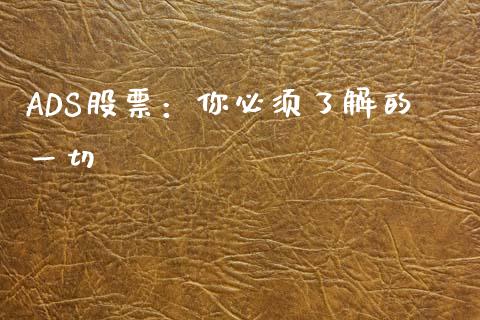 ADS股票：你必须了解的
一切